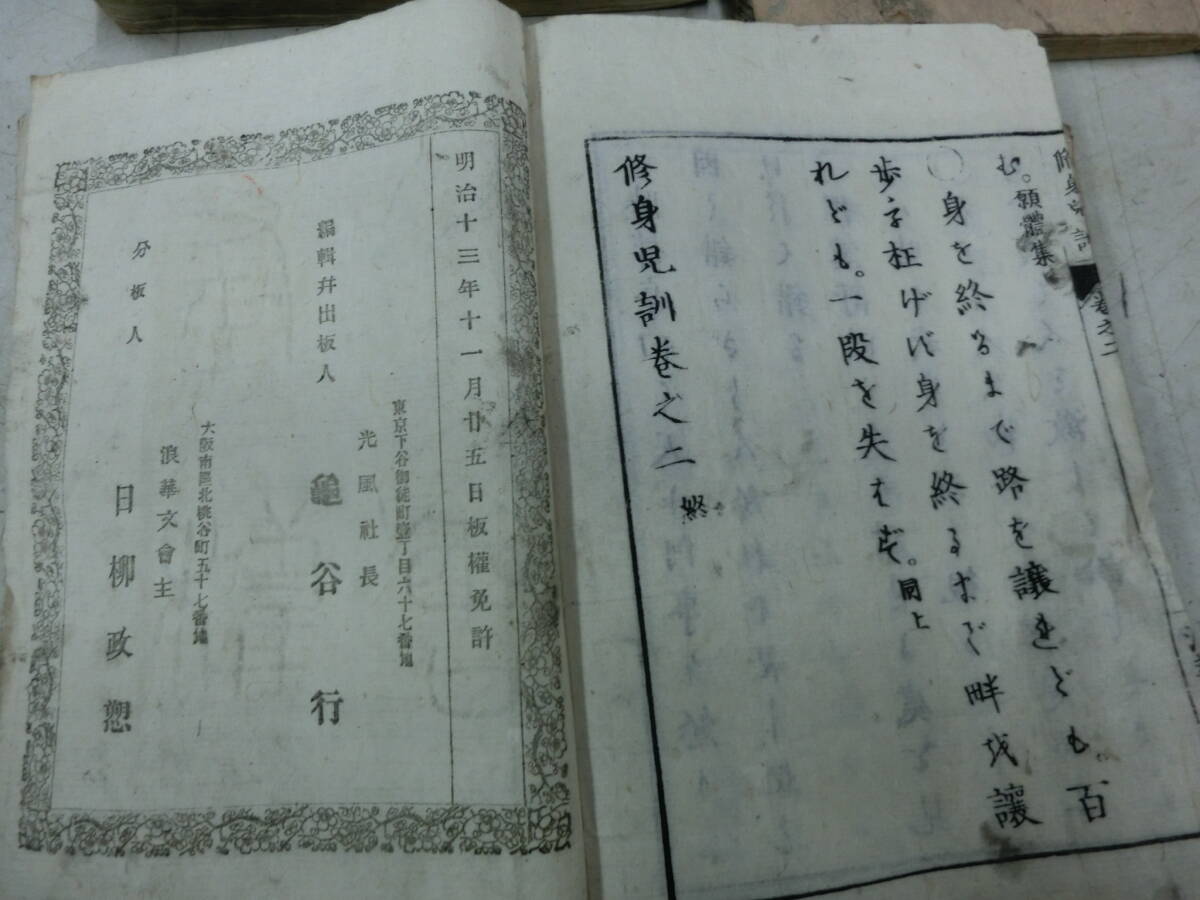 修身児訓 卷之二
む。願體集
○身を終るまで路を讓れども。百
歩を枉げず身を終るまで畔を讓
れども。一段を失はず。同上
修身児訓卷之二 終
明治十三年十一月廿五日板權免許
東京下谷御徒町壹丁目六十七番地
光風社長
編輯幷出板人 龜谷行
大阪南區北桃谷町五十七番地
浪華文會主
分板人 日柳政愬